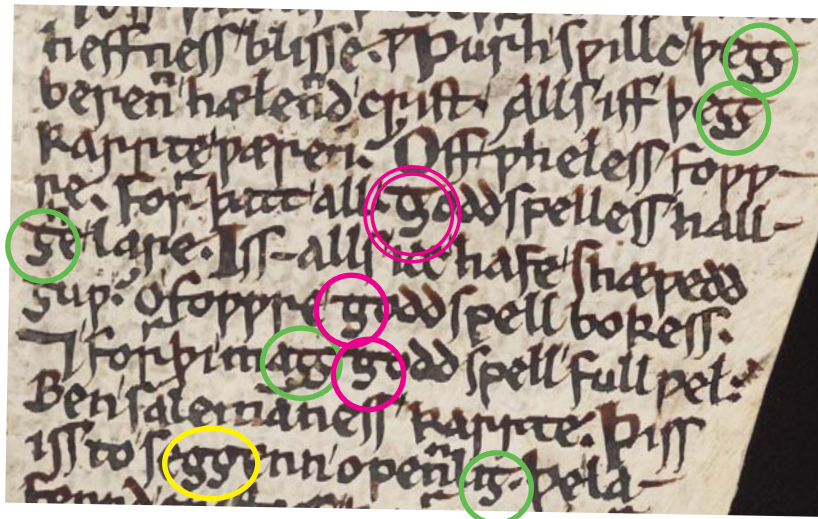 heffness blisse. ⁊ Þurrh swillc þeȝȝ
berenn hælennd crist. Alls iff þeȝȝ
karrte wærenn. Off wheless foww-
re. Forr þatt all goddspelless hall-
ȝhe lare. Iss- alls icc hafe shæwedd
ȝuw. O fowwre goddspell bokess.
⁊ forrþi maȝȝ goddspell full wel.
Ben salemaness karrte. Þiss
iss to seggenn openliȝ. þe la-